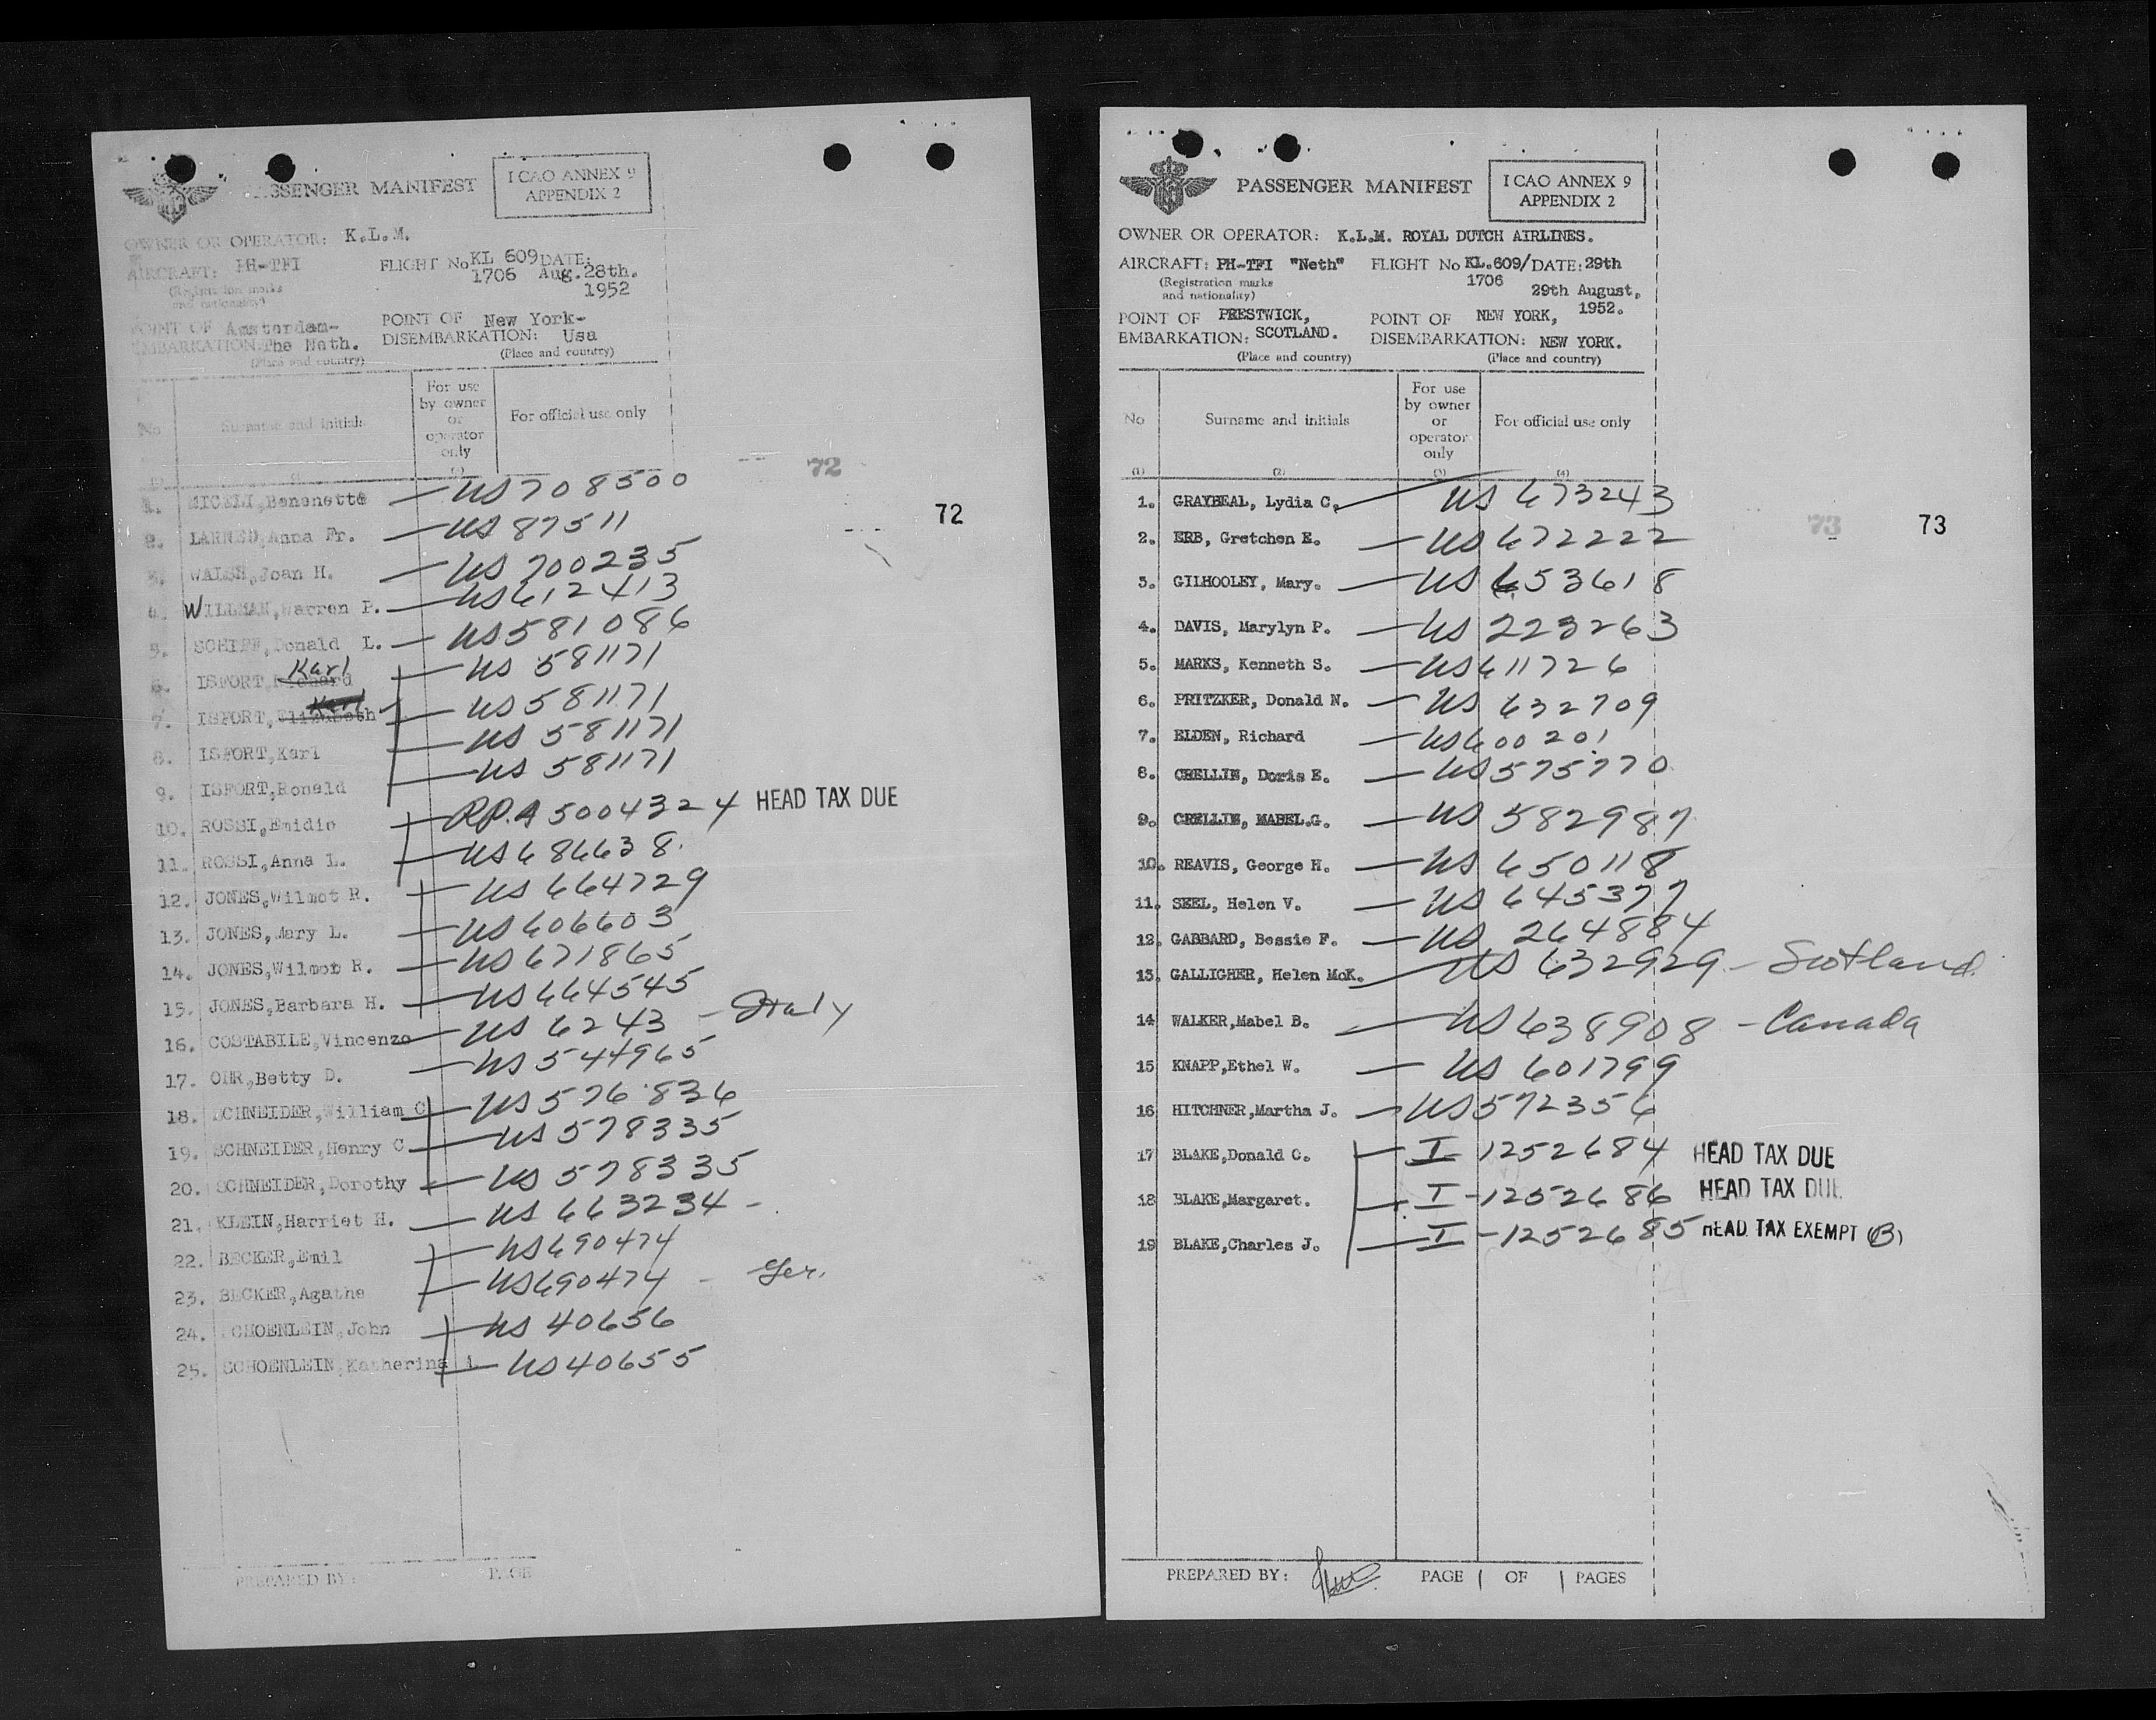 PASSENGER MANIFEST
I CAO ANNEX 9
APPENDIX 2
OWNER OR OPERATOR: K.L.M.
AIRCRAFT: PH-TFI FLIGHT No KL 609 DATE:
1706 Aug. 28th.
1952
(Registration marks
and nationality)
POINT OF Amsterdam- POINT OF New York-
EMBARKATION: The Neth. DISEMBARKATION: Usa
(Place and country) (Place and country)
No
Surname and initials
For use
by owner
or
operator
only
For official use only
72
72
1. MICELI, US 708500
2. LARNED, Anna Fr. US 87511
3. WALSH, Joan H. US 700235
4. WILLMAN, Warren P. US 612413
5. SCHIFF, Donald L. US 581086
Karl
6. ISFORT, Richard US 581171
Karl
7. ISFORT, Elizabeth US 581171
8. ISFORT, Karl US 581171
9. ISFORT, Ronald US 581171
10. ROSSI, Emidio RP.A 5004324 HEAD TAX DUE
11. ROSSI, Anna L. US 686638
12. JONES, Wilmot R. US 664729
13. JONES, Mary L. US 606603
14. JONES, Wilmot R. US 671865
15. JONES, Barbara H. US 664545
16. COSTABILE, Vincenzo US 6243 - Italy
17. OHR, Betty D. US 544965
18. SCHNEIDER, William C US 576836
19. SCHNEIDER, Henry C US 578335
20. SCHNEIDER, Dorothy US 578335
21. KLEIN, Harriet H. US 663234 -
22. BECKER, Emil US 690474
23. BECKER, Agathe US 690474 - Ger.
24. SCHOENLEIN, John US 40656
25. SCHOENLEIN, Katherina US 40655
PREPARED BY: PAGE
PASSENGER MANIFEST
I CAO ANNEX 9
APPENDIX 2
OWNER OR OPERATOR: K.L.M. ROYAL DUTCH AIRLINES.
AIRCRAFT: PH-TFI "Neth" FLIGHT No KL.609/ DATE: 29th
1706 29th August,
1952.
(Registration marks
and nationality)
POINT OF PRESTWICK, POINT OF NEW YORK,
EMBARKATION: SCOTLAND. DISEMBARKATION: NEW YORK.
(Place and country) (Place and country)
No
Surname and initials
For use
by owner
or
operator
only
For official use only
(1) (2) (3) (4)
73
73
1. GRAYBEAL, Lydia C. US 673243
2. ERB, Gretchen E. US 672222
3. GILHOOLEY, Mary. US 653618
4. DAVIS, Marylyn P. US 223263
5. MARKS, Kenneth S. US 611726
6. PRITZKER, Donald N. US 632709
7. ELDEN, Richard US 600201
8. CRELLIN, Doris E. US 575770
9. CRELLIN, MABEL.G. US 582987
10. REAVIS, George H. US 650118
11. SEEL, Helen V. US 645377
12. GABBARD, Bessie F. US 264884
13. GALLIGHER, Helen McK. US 632929 - Scotland
14 WALKER, Mabel B. US 638908 - Canada
15 KNAPP, Ethel W. US 601799
16 HITCHNER, Martha J. US 572356
17 BLAKE, Donald C. I 1252684 HEAD TAX DUE
18 BLAKE, Margaret. I - 1252686 HEAD TAX DUE
19 BLAKE, Charles J. I - 1252685 HEAD TAX EXEMPT (B)
PREPARED BY: PAGE 1 OF 1 PAGES